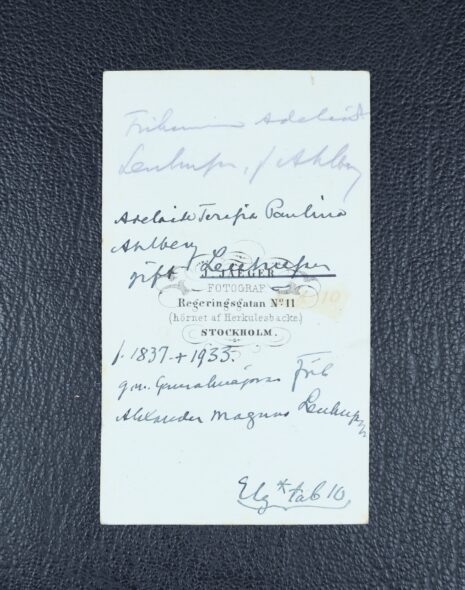 Friherrinna Adelaide
Leuhusen, f. Ahlberg
Adelaide Teresia Paulina
Ahlberg
gift Leuhusen
J. JAEGER
FOTOGRAF
Regeringsgatan No 11
(hörnet af Herkulesbacke)
STOCKHOLM.
10
f. 1837 + 1933.
g.m. Generalmajoren Frih
Alexander Magnus Leuhusen
Elg* tab 10,